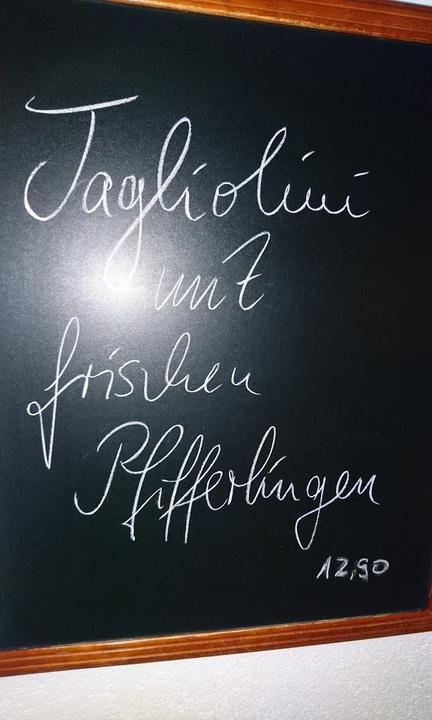 Tagliolini
mit
frischen
Pfifferlingen
12,90